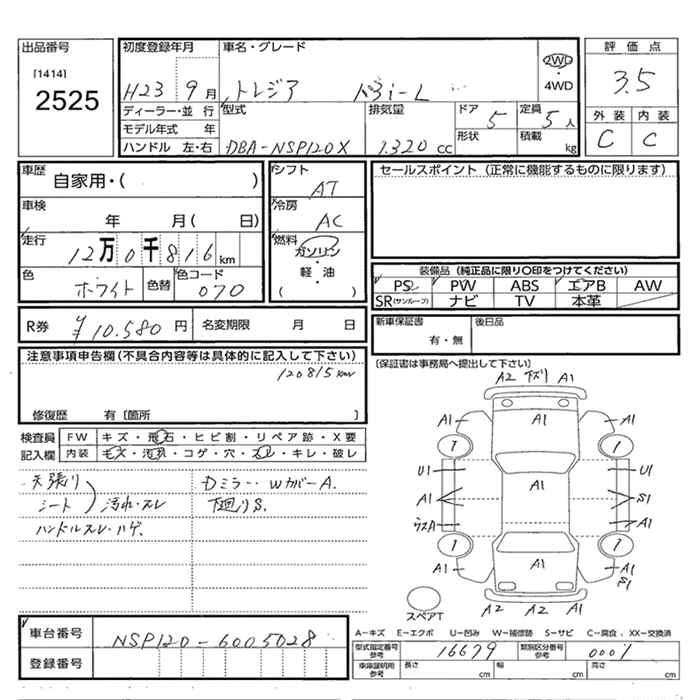 出品番号
[1414]
2525
初度登録年月
H23 9月
車名・グレード
トレジア 1.3i-L
2WD・4WD
評価点
3.5
外装 内装
C C
ディーラー・並行
モデル年式 年
ハンドル 左・右
型式
DBA-NSP120X
排気量
1320 cc
ドア
5
形状
定員
5人
積載
kg
車歴
自家用・( )
車検
年 月( 日)
走行
12万0千816km
色
ホワイト
色替
色コード
070
シフト
AT
冷房
AC
燃料
ガソリン・軽油
( )
セールスポイント (正常に機能するものに限ります)
装備品 (純正品に限り○印をつけてください)
PS PW ABS エアB AW
SR(サンルーフ) ナビ TV 本革
R券
¥10.580円
名変期限 月 日
新車保証書
有・無
後日品
[保証書は事務局へ提出して下さい]
注意事項申告欄(不具合内容等は具体的に記入して下さい)
120815km
修復歴 有〔箇所 〕
検査員記入欄
FW キズ・飛石・ヒビ割・リペア跡・X要
内装 キズ・汚れ・コゲ・穴・スレ・キレ・破レ
天張り
シート
汚れ・スレ
ハンドルスレ・ハゲ.
Dミラー・WカバーA.
下廻りS.
A2 下ズリ A1
A1 A1 A1
1 1
U1 U1
A1 A1 S1
ウスA A1
1 1
A1 A1 A1
S1
スペアT
A2 A2 A1
A-キズ E-エクボ U-凹み W-補修跡 S-サビ C-腐食、XX-交換済
車台番号
NSP120-6005028
登録番号
型式指定番号
参考
16679
類別区分番号
参考
0001
車庫証明用
参考
長さ cm
幅 cm
高さ cm